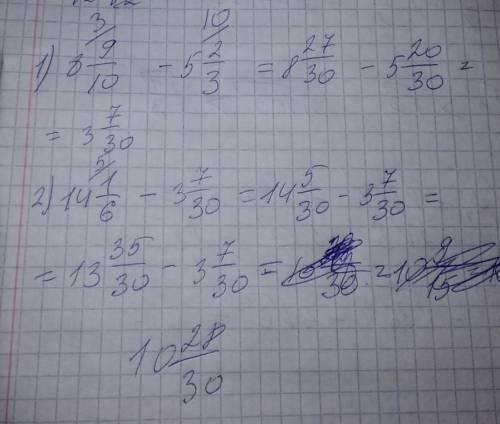 3/ 10/
1) 8 9/10 - 5 2/3 = 8 27/30 - 5 20/30 =
= 3 7/30
5/
2) 14 1/6 - 3 7/30 = 14 5/30 - 3 7/30 =
= 13 35/30 - 3 7/30 =
10 28/30